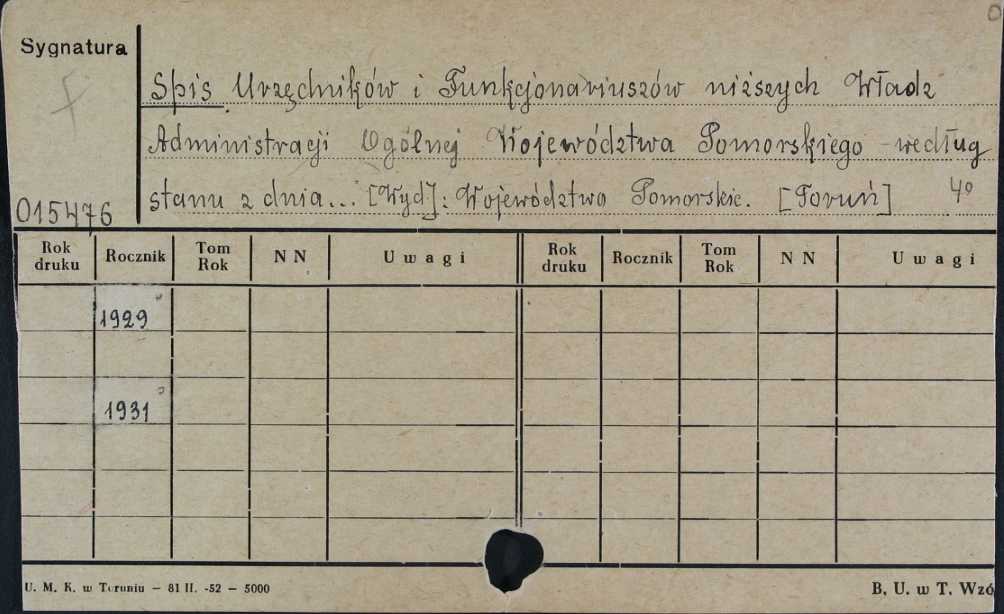 Sygnatura
Spis Urzędników i Funkcjonariuszów niższych Władz
Administracji Ogólnej Województwa Pomorskiego według
stanu z dnia... [Wyd]: Województwo Pomorskie. [Toruń] 4º
015476
Rok druku Rocznik Tom Rok N N Uwagi Rok druku Rocznik Tom Rok N N Uwagi
1929
1931
U. M. K. w Toruniu — 81 II. -52 — 5000 B. U. w T. Wzó